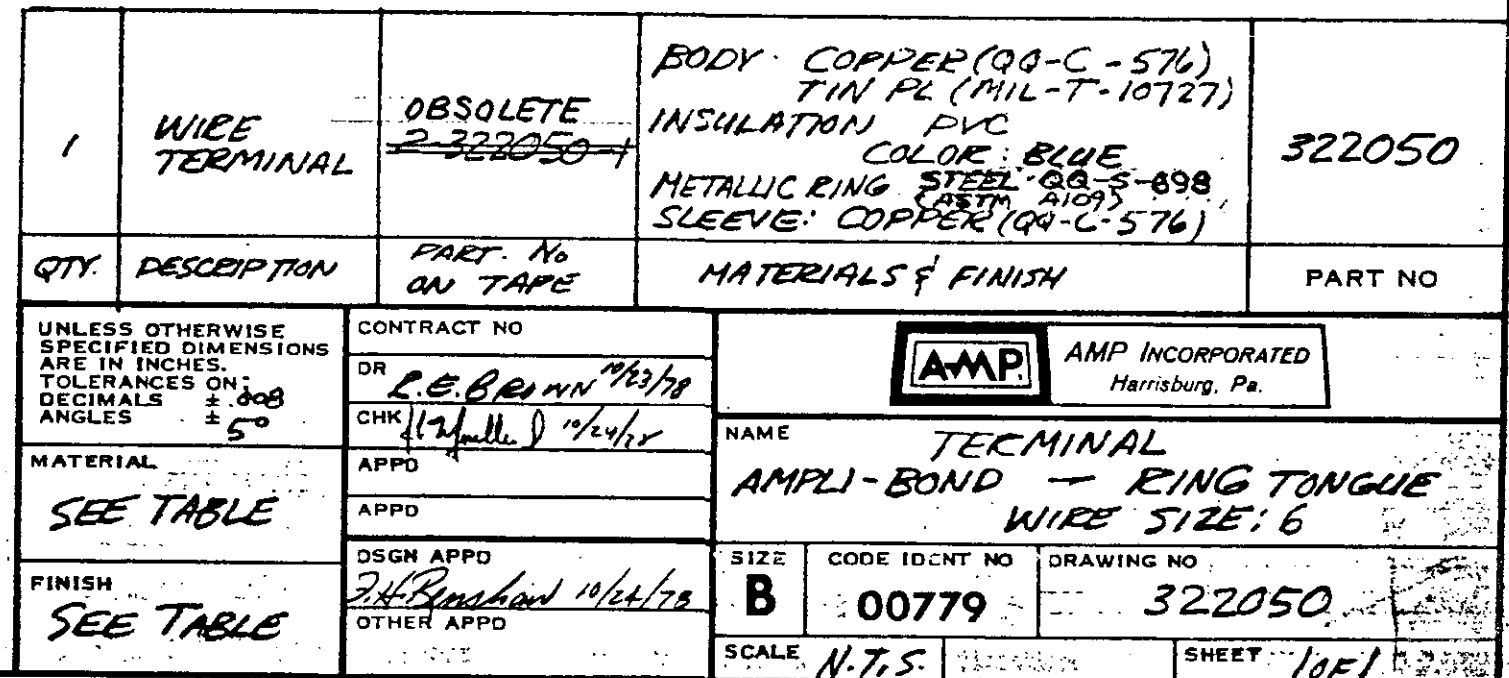 1
WIRE
TERMINAL
OBSOLETE
2-322050-1
BODY: COPPER (QQ-C-576)
TIN PL (MIL-T-10727)
INSULATION PVC
COLOR: BLUE
METALLIC RING STEEL QQ-S-698
(ASTM A109)
SLEEVE: COPPER (QQ-C-576)
322050
QTY.
DESCRIPTION
PART. No
ON TAPE
MATERIALS & FINISH
PART NO
UNLESS OTHERWISE
SPECIFIED DIMENSIONS
ARE IN INCHES.
TOLERANCES ON:
DECIMALS ± .008
ANGLES ± 5°
MATERIAL
SEE TABLE
FINISH
SEE TABLE
CONTRACT NO
DR R.E. BROWN 10/23/78
CHK 10/24/78
APPD
APPD
DSGN APPD
J.H. Renshaw 10/24/78
OTHER APPD
AMP
AMP INCORPORATED
Harrisburg, Pa.
NAME
TERMINAL
AMPLI-BOND — RING TONGUE
WIRE SIZE: 6
SIZE
B
CODE IDENT NO
00779
DRAWING NO
322050
SCALE N.T.S.
SHEET 1 OF 1